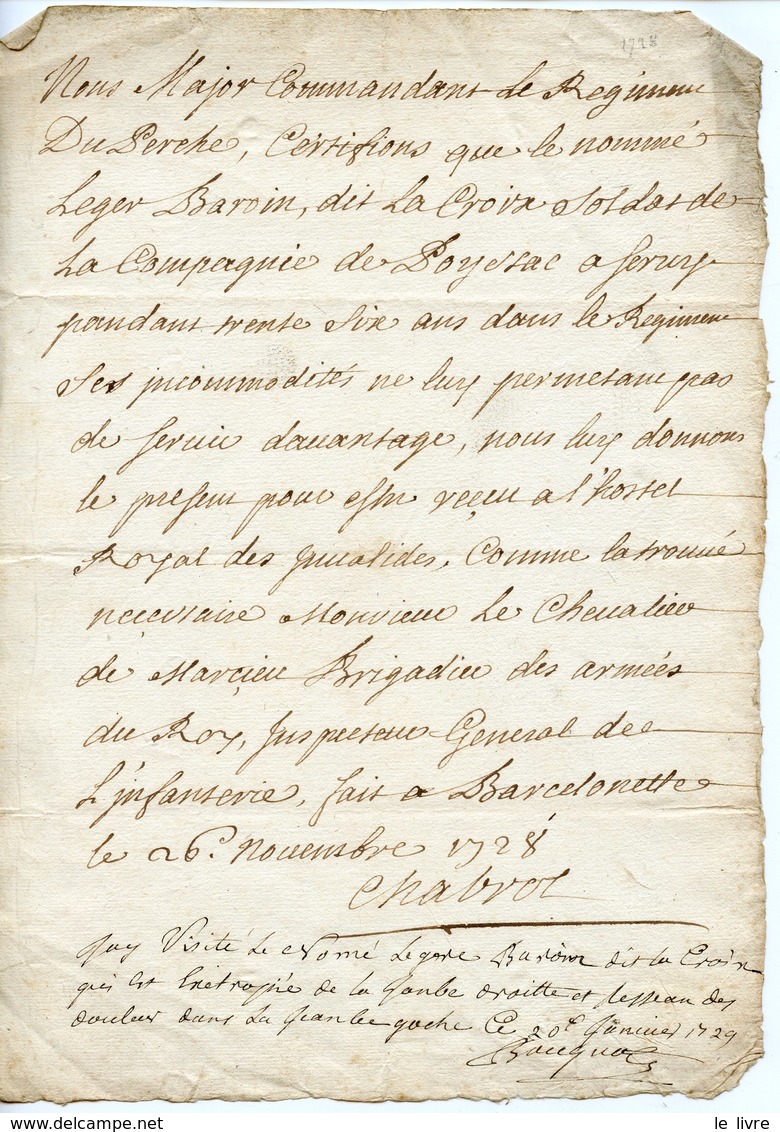 1728
Nous Major Commandant Le Regiment
Du Perche, Certifions que le nommé
Leger Baroin, dit La Croix Soldat de
La Compagnie de Poyessac a seruy
pandant trente Six ans dans le Regiment
Ses incommodités ne luy permetant pas
de seruir dauantage, nous luy donnons
le present pour estre reçeu a l'hostel
Royal des Jnualides, Comme la trouué
neçessaire Monsieur Le Cheualier
de Marçieu Brigadier des armées
du Roy, Jnspecteur General de
L'jnfanterie, fait a Barcelonette
le 26e Nouembre 1728
Chabrol
Jay Visité Le Nomé Legere Baroin dit la Croix
qui est de la Janbe droitte et des
douleur dans La Jeanbe goche Ce 20e Janvier 1729
le livre